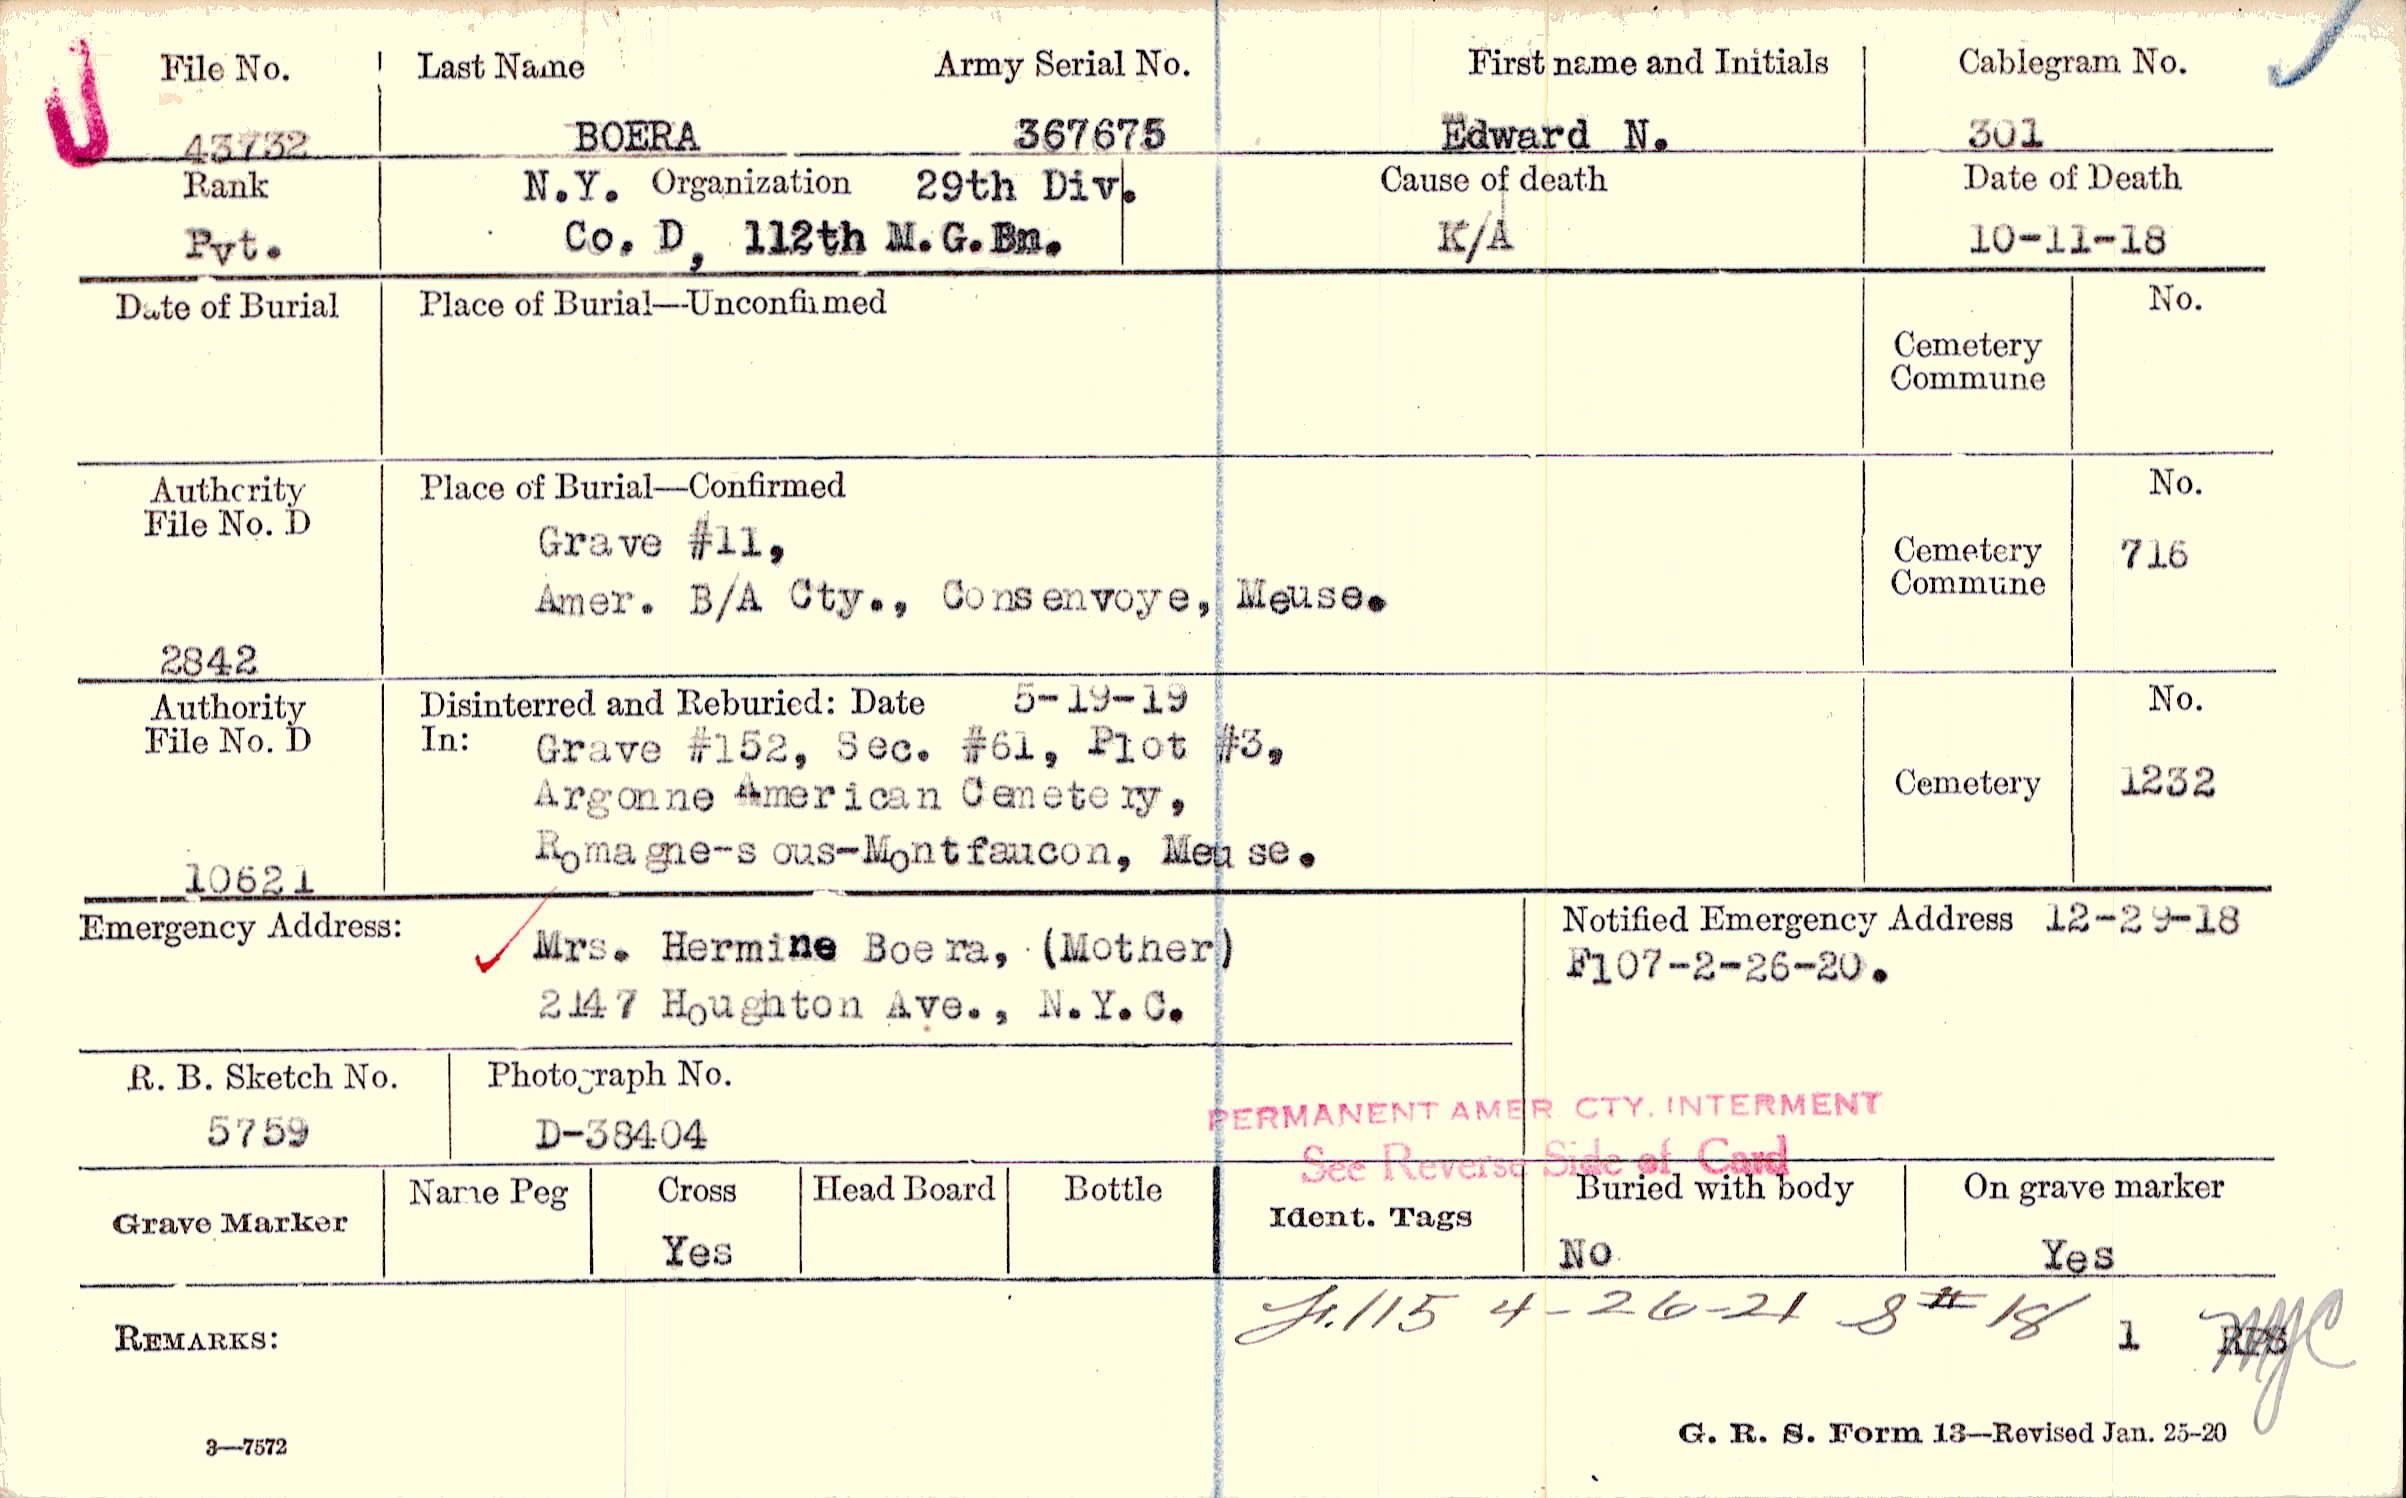 File No. Last Name Army Serial No. First name and Initials Cablegram No.
43732 BOERA 367675 Edward N. 301
Rank N.Y. Organization 29th Div. Cause of death Date of Death
Pvt. Co. D, 112th M.G.Bn. K/A 10-11-18
Date of Burial Place of Burial—Unconfirmed No.
Cemetery
Commune
Authority Place of Burial—Confirmed No.
File No. D
Grave #11,
Cemetery 716
Commune
Amer. B/A Cty., Consenvoye, Meuse.
2842
Authority Disinterred and Reburied: Date 5-19-19 No.
File No. D In: Grave #152, Sec. #61, Plot #3,
Argonne American Cemetery, Cemetery 1232
Romagne-sous-Montfaucon, Meuse.
10621
Emergency Address: Notified Emergency Address 12-29-18
Mrs. Hermine Boera, (Mother) F107-2-26-20.
2147 Houghton Ave., N.Y.C.
R. B. Sketch No. Photograph No.
5759 D-38404
PERMANENT AMER CTY. INTERMENT
See Reverse Side of Card
Grave Marker Name Peg Cross Head Board Bottle Ident. Tags Buried with body On grave marker
Yes No Yes
115 4-26-21 8 # 18
REMARKS: 1 RPS
3—7572 G. R. S. Form 13—Revised Jan. 25-20